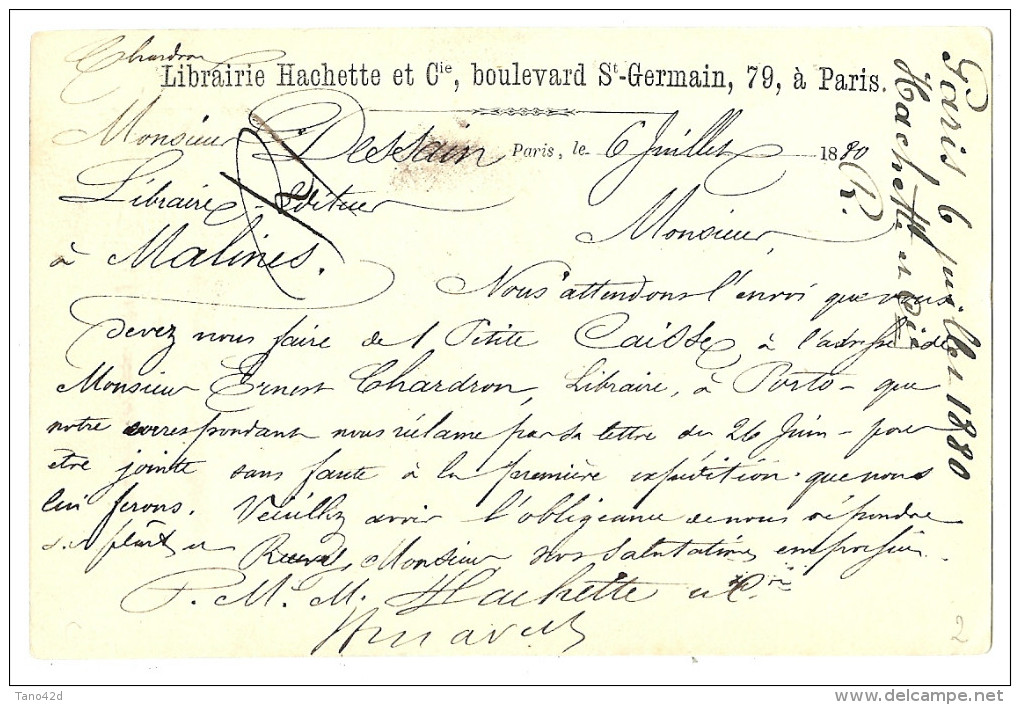 Chardron
Librairie Hachette et Cie, boulevard St-Germain, 79, à Paris.
Monsieur Dessain Paris, le 6 Juillet 1880
Libraire-éditeur
à Malines.
Monsieur,
Nous attendons l'envoi que vous
devez nous faire de 1 Petite Caisse à l'adresse de
Monsieur Ernest Chardron, Libraire, à Porto - que
notre correspondant nous réclame par sa lettre du 26 Juin - pour
être jointe sans faute à la première expédition que nous
lui ferons. Veuillez avoir l'obligeance de nous répondre
s.v. plaît et Recevez, Monsieur nos salutations empressées.
P. M. M. Hachette et Cie
Paris, 6 juillet 1880
Hachette et Cie
R.
2
Tano42d
www.delcampe.net